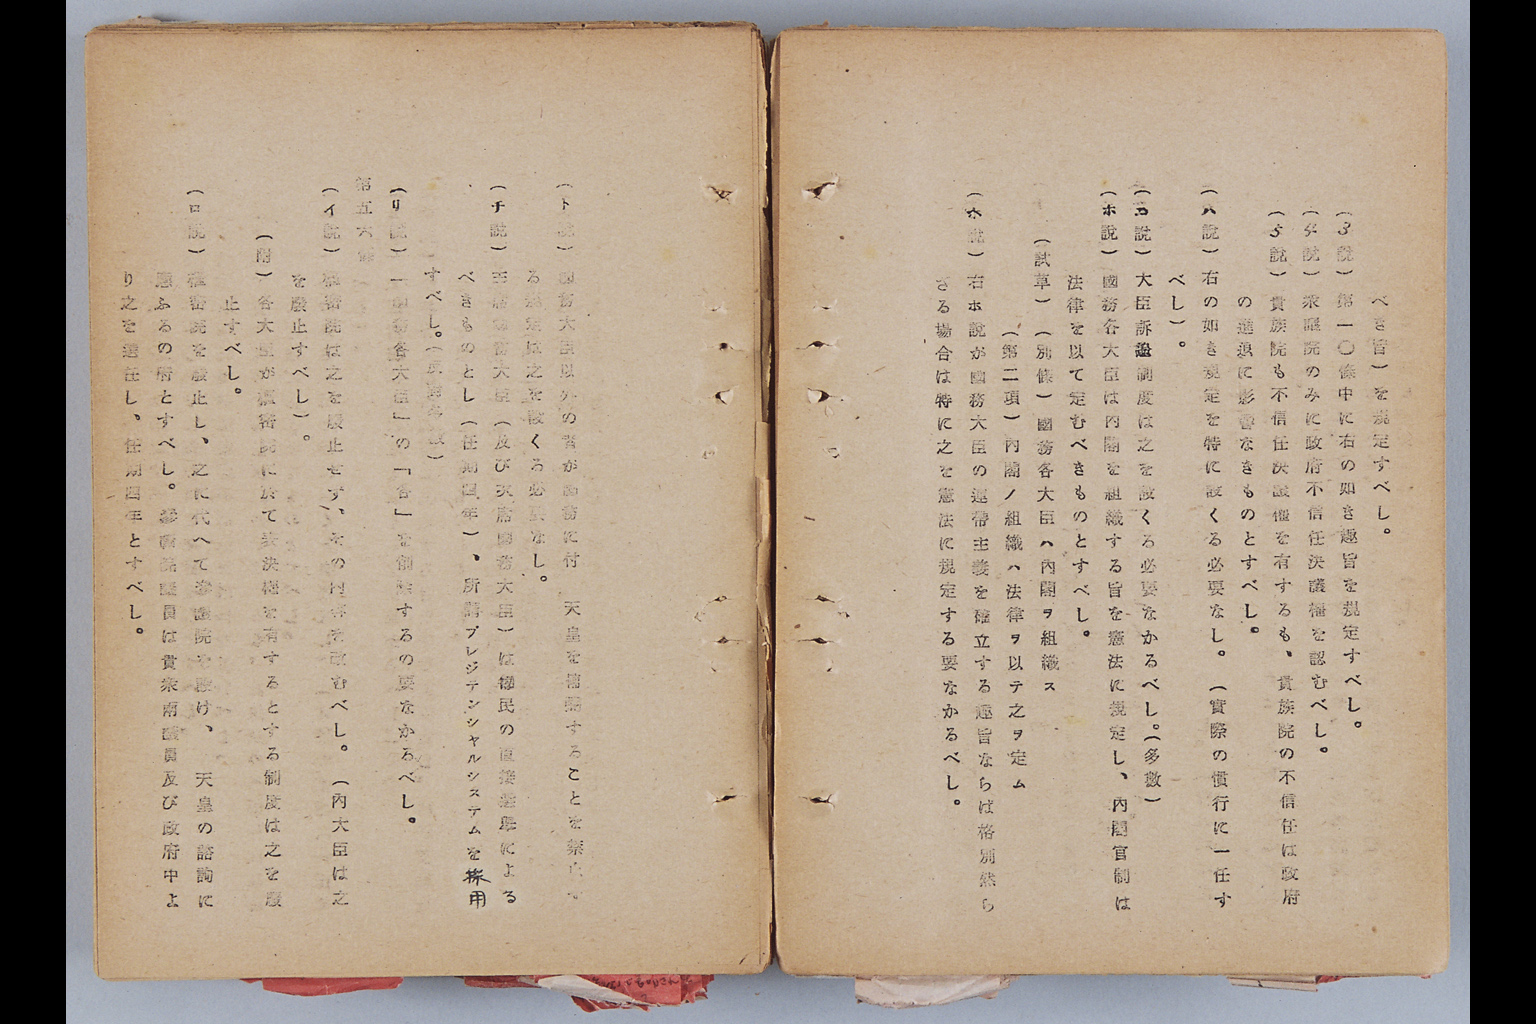 べき旨)を規定すべし。
(3說)第一〇條中に右の如き趣旨を規定すべし。
(4說)衆議院のみに政府不信任決議權を認むべし。
(5說)貴族院も不信任決議權を有するも、貴族院の不信任は政府
の進退に影響なきものとすべし。
(ハ說)右の如き規定を特に設くる必要なし。(實際の慣行に一任す
べし)。
(ニ說)大臣訴訟制度は之を設くる必要なかるべし。(多數)
(ホ說)國務各大臣は內閣を組織する旨を憲法に規定し、內閣官制は
法律を以て定むべきものとすべし。
(試草)(別條)國務各大臣ハ內閣ヲ組織ス
(第二項)內閣ノ組織ハ法律ヲ以テ之ヲ定ム
(ヘ說)右ホ說が國務大臣の連帶主義を確立する趣旨ならば格別然ら
ざる場合は特に之を憲法に規定する要なかるべし。
(ト說)國務大臣以外の者が國務に付 天皇を輔弼することを禁止す
る規定は之を設くる必要なし。
(チ說)主席國務大臣(及び次席國務大臣)は國民の直接選擧による
べきものとし(任期四年)、所謂プレジデンシャルシステムを採用
すべし。
(リ說)「國務各大臣」の「各」を削除するの要なかるべし。
第五六條
(イ說)樞密院は之を廢止せず、その內容を改むべし。(內大臣は之
を廢止すべし)。
(附)各大臣が樞密院に於て表決權を有するとする制度は之を廢
止すべし。
(ロ說)樞密院を廢止し、之に代へて參議院を設け、 天皇の諮詢に
應ふるの府とすべし。參議院議員は貴衆兩議員及び政府中よ
り之を選任し、任期四年とすべし。